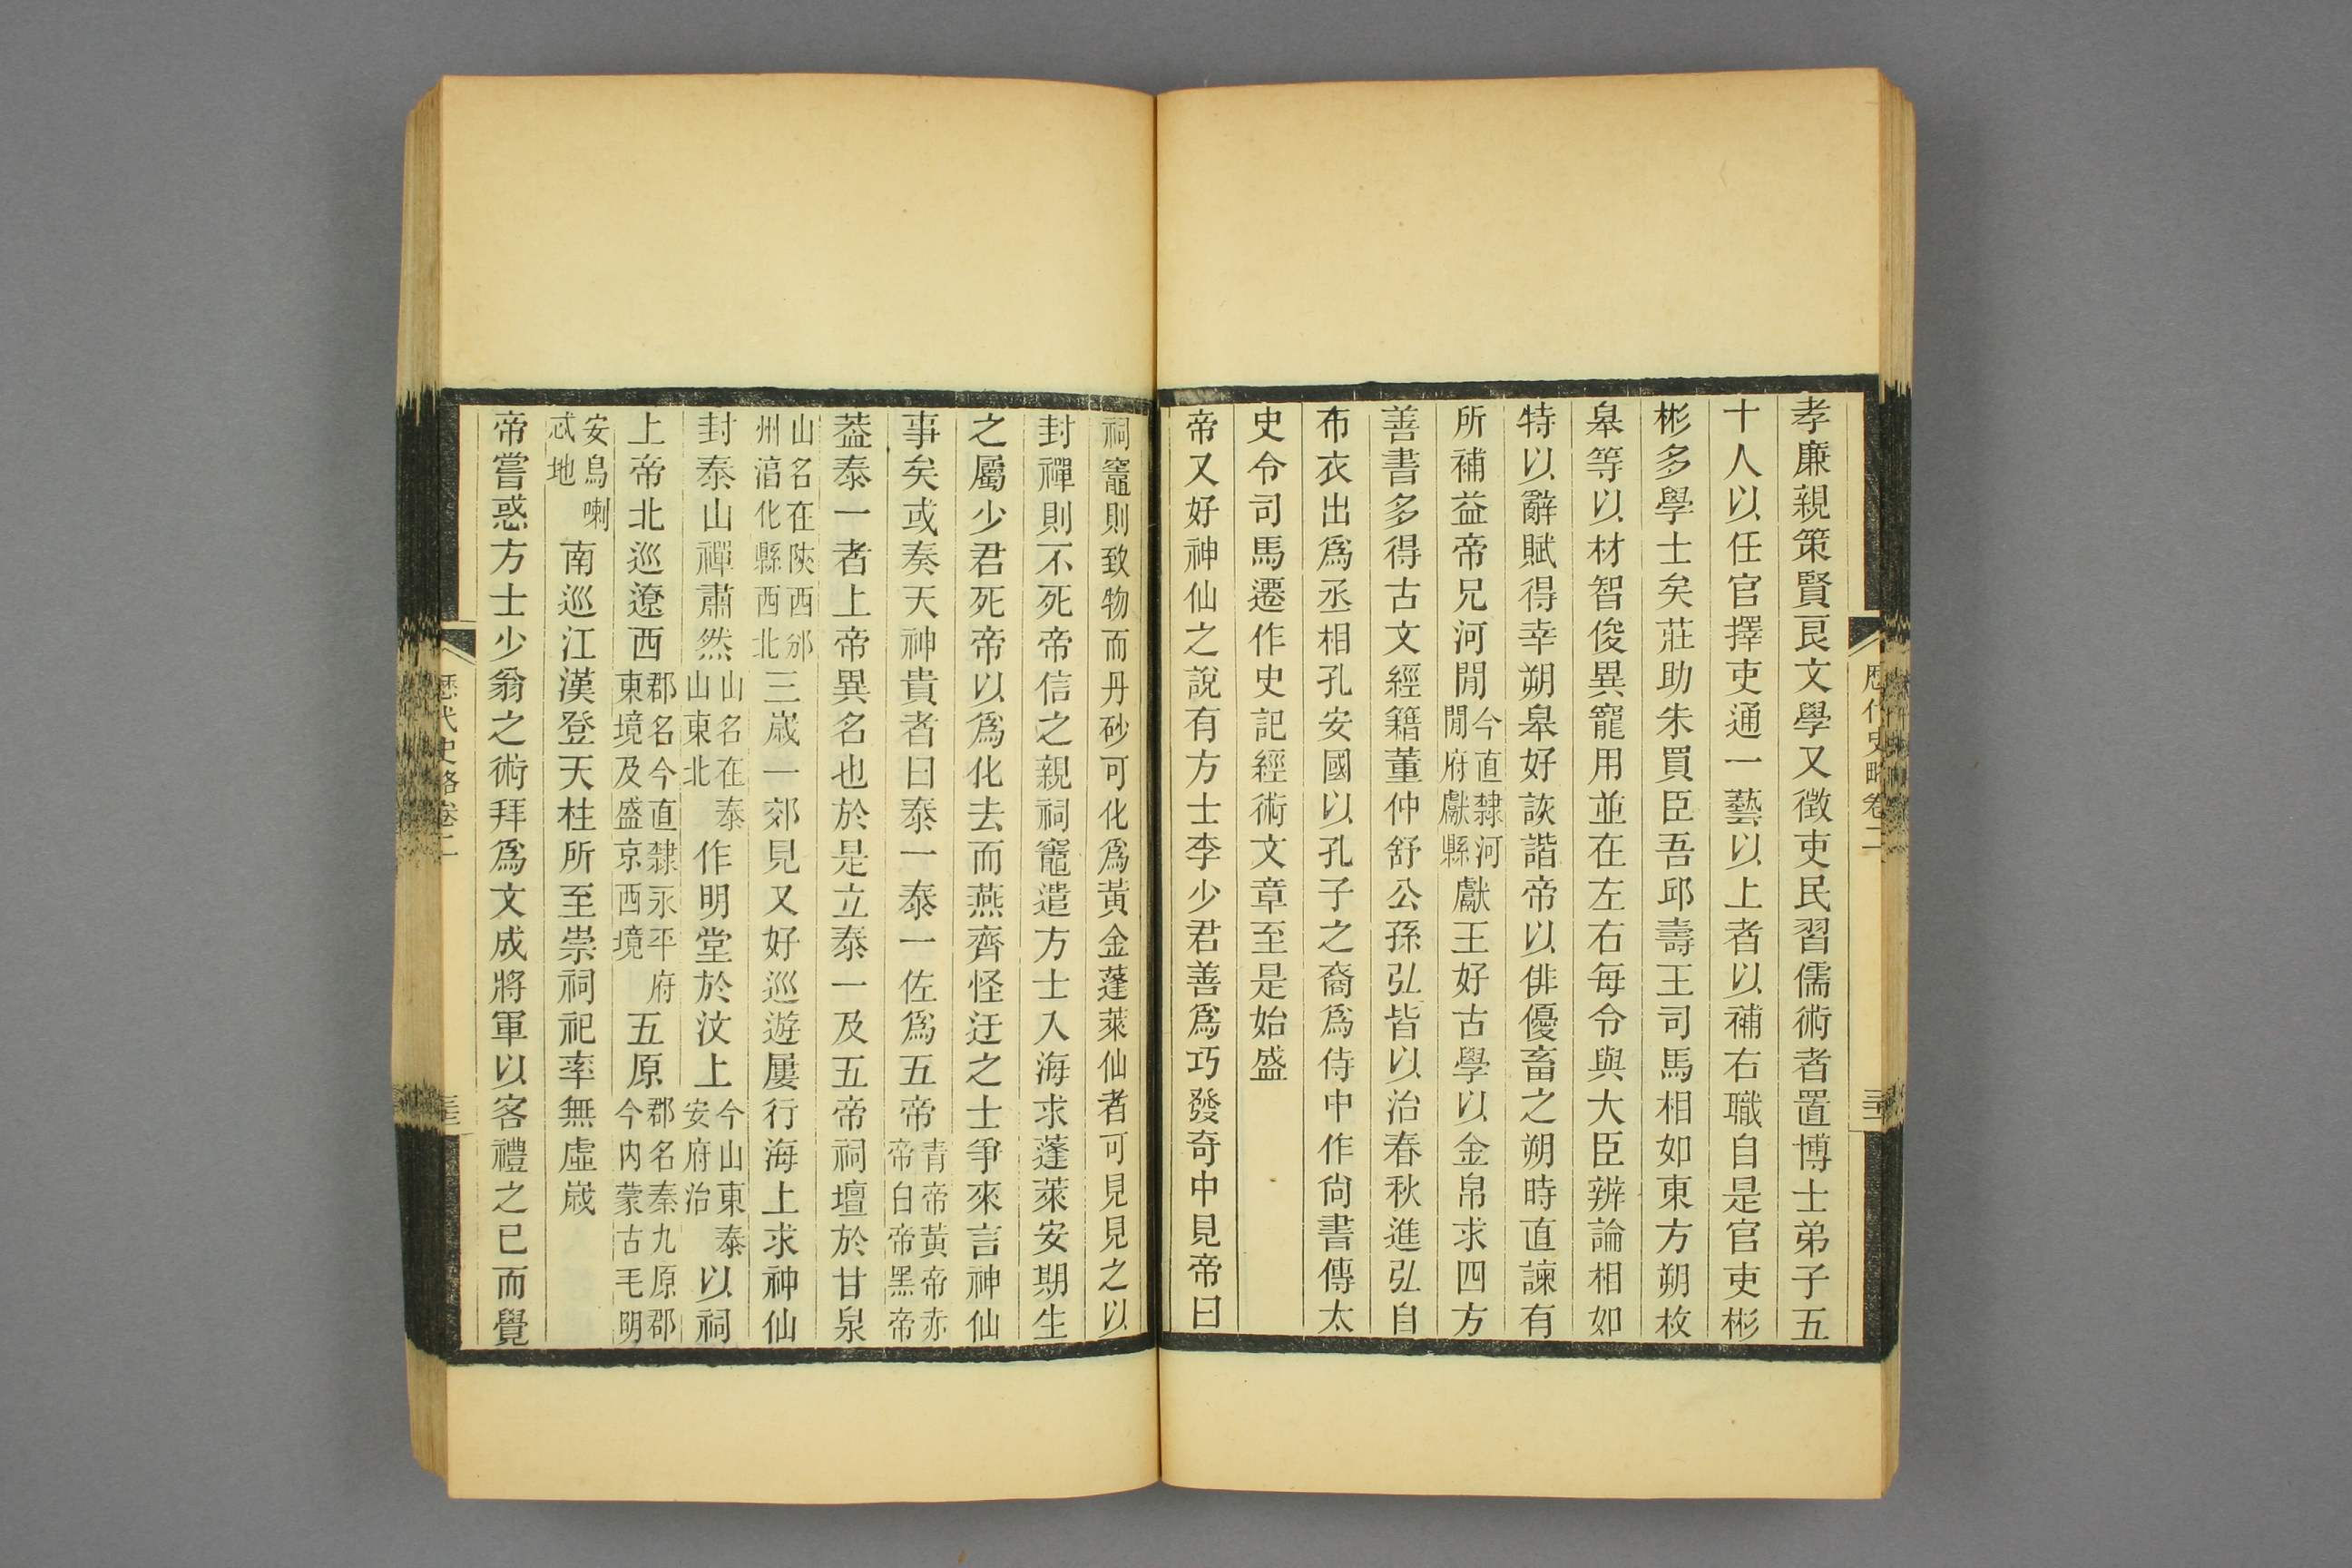 歷代史略卷二
孝廉親策賢良文學又徵吏民習儒術者置博士弟子五
十人以任官擇吏通一藝以上者以補右職自是官吏彬
彬多學士矣莊助朱買臣吾邱壽王司馬相如東方朔枚
皋等以材智俊異寵用並在左右每令與大臣辨論相如
特以辭賦得幸朔皋好詼諧帝以俳優畜之朔時直諫有
所補益帝兄河閒今直隸河閒府獻縣獻王好古學以金帛求四方
善書多得古文經籍董仲舒公孫弘皆以治春秋進弘自
布衣出爲丞相孔安國以孔子之裔爲侍中作尙書傳太
史令司馬遷作史記經術文章至是始盛
帝又好神仙之說有方士李少君善爲巧發奇中見帝曰
祠竈則致物而丹砂可化爲黃金蓬萊仙者可見見之以
封禪則不死帝信之親祠竈遣方士入海求蓬萊安期生
之屬少君死帝以爲化去而燕齊怪迂之士爭來言神仙
事矣或奏天神貴者曰泰一泰一佐爲五帝青帝黃帝赤帝白帝黑帝
葢泰一者上帝異名也於是立泰一及五帝祠壇於甘泉
山名在陝西邠州淯化縣西北三歲一郊見又好巡遊屢行海上求神仙
封泰山禪肅然山名在泰山東北作明堂於汶上今山東泰安府治以祠
上帝北巡遼西郡名今直隸永平府東境及盛京西境五原郡名秦九原郡今內蒙古毛明
安烏喇忒地南巡江漢登天柱所至崇祠祀率無虛歲
帝嘗惑方士少翁之術拜爲文成將軍以客禮之已而覺
歷代史略卷二